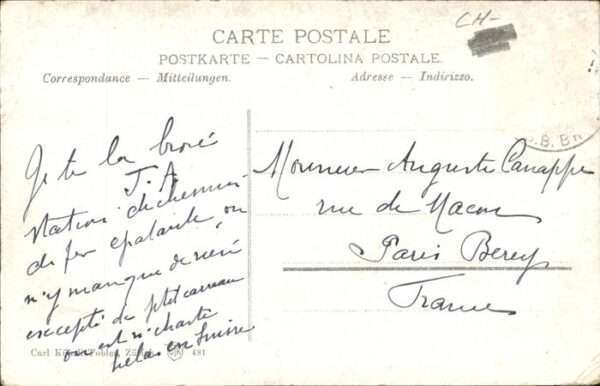 CH-
CARTE POSTALE
POSTKARTE — CARTOLINA POSTALE.
Correspondance — Mitteilungen.
Adresse — Indirizzo.
B. Bn
Je te la
J. A.
Station de chemin
de fer épatante, on
n'y manque de rien
excepté de
on est si
hélas en Suisse
Monsieur Auguste Canappe
rue de Macon
Paris Bercy
France
Carl Zürich 481